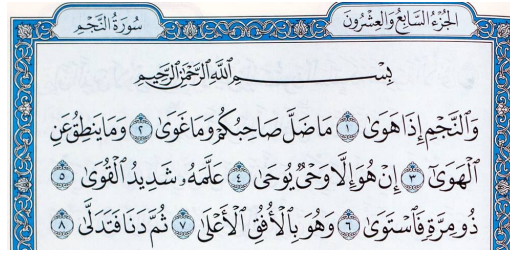 الجزء السابع والعشرون
سورة النجم
بِسْمِ اللَّهِ الرَّحْمَٰنِ الرَّحِيمِ
وَالنَّجْمِ إِذَا هَوَىٰ ١ مَا ضَلَّ صَاحِبُكُمْ وَمَا غَوَىٰ ٢ وَمَا يَنطِقُ عَنِ
الْهَوَىٰ ٣ إِنْ هُوَ إِلَّا وَحْيٌ يُوحَىٰ ٤ عَلَّمَهُ شَدِيدُ الْقُوَىٰ ٥
ذُو مِرَّةٍ فَاسْتَوَىٰ ٦ وَهُوَ بِالْأُفُقِ الْأَعْلَىٰ ٧ ثُمَّ دَنَا فَتَدَلَّىٰ ٨